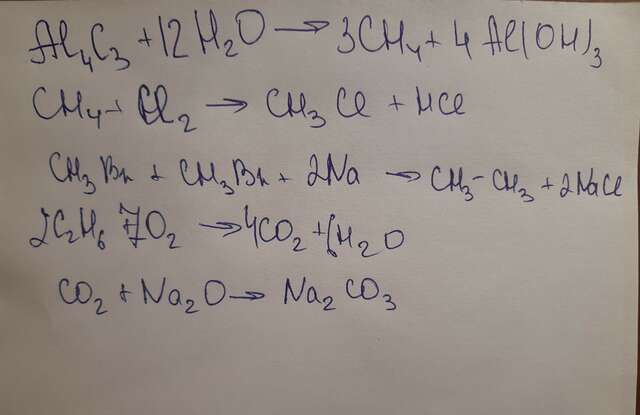 Al₄C₃ + 12H₂O → 3CH₄ + 4Al(OH)₃
CH₄ + Cl₂ → CH₃Cl + HCl
CH₃Br + CH₃Br + 2Na → CH₃-CH₃ + 2NaCl
2C₂H₆ 7O₂ → 4CO₂ + 6H₂O
CO₂ + Na₂O → Na₂CO₃